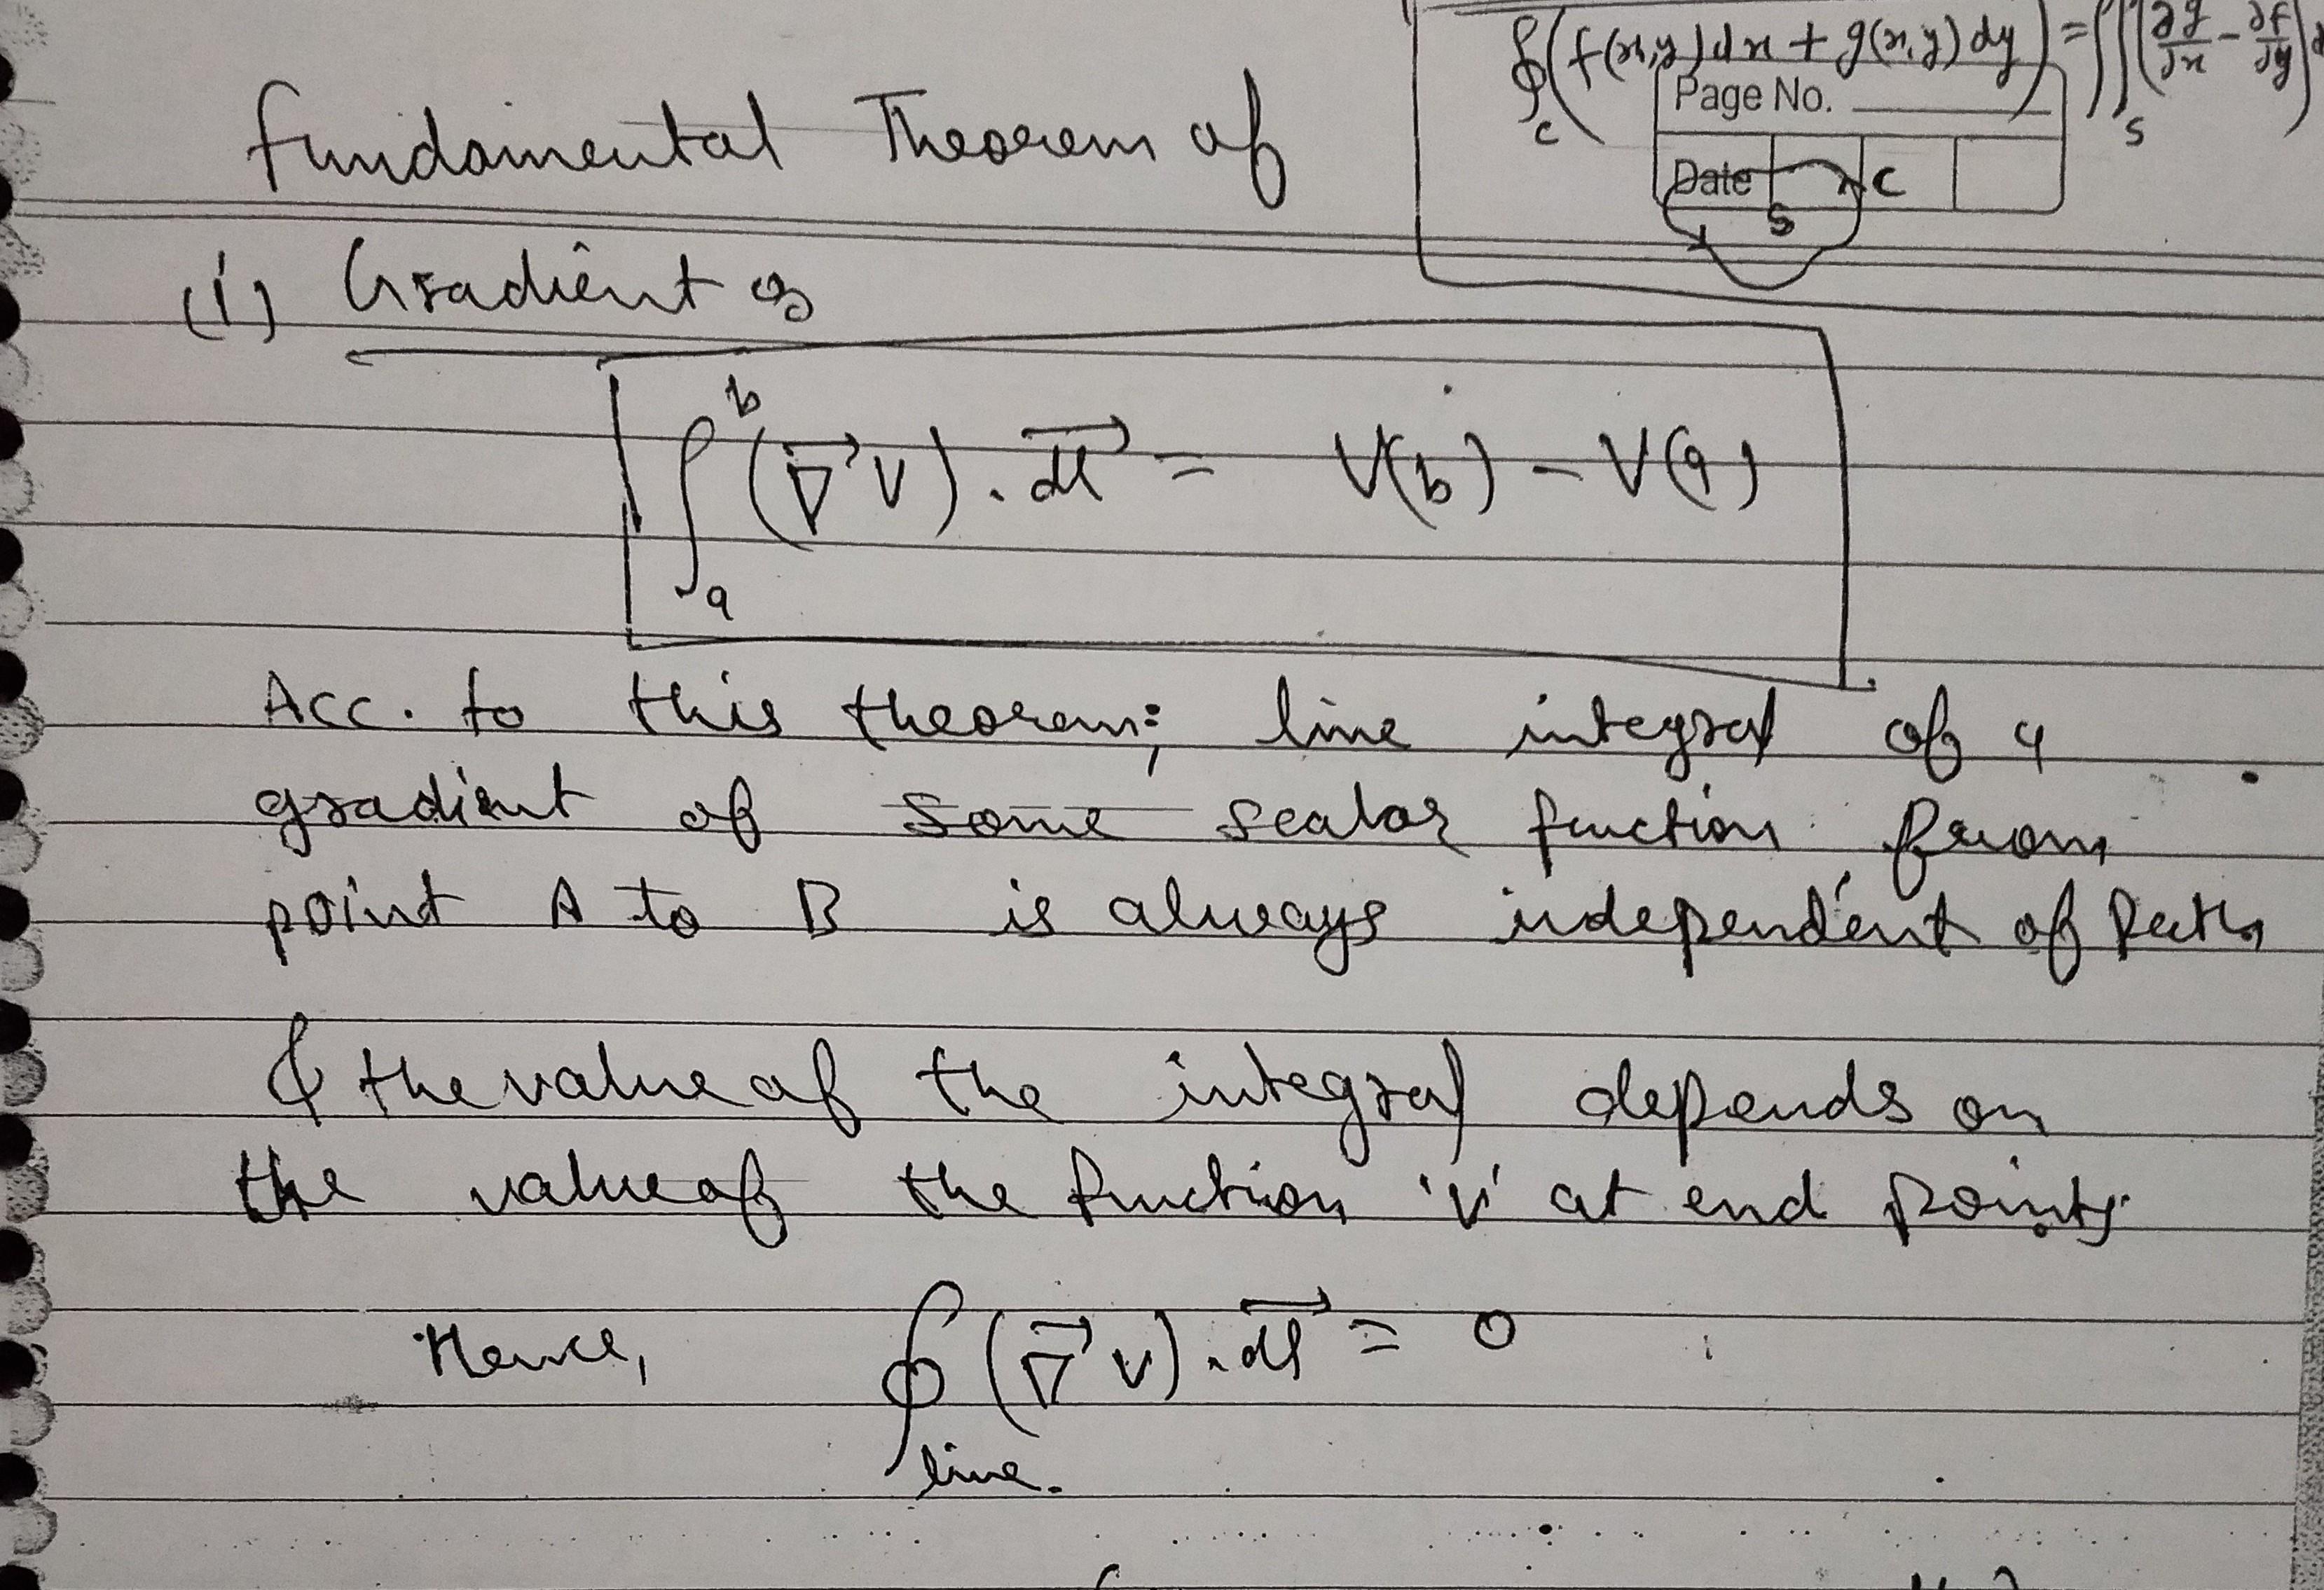 ∮_C (f(x,y)dx + g(x,y)dy) = ∬_S (∂g/∂x − ∂f/∂y)
Page No.
Date
C
S
Fundamental Theorem of
(i) Gradient
∫_a^b (∇⃗V) . d⃗l = V(b) − V(a)
Acc. to this theorem; line integral of a
gradient of some scalar function from
point A to B is always independent of Path
& the value of the integral depends on
the value of the function 'V' at end points.
Hence, ∮_line. (∇⃗V) . d⃗l = 0